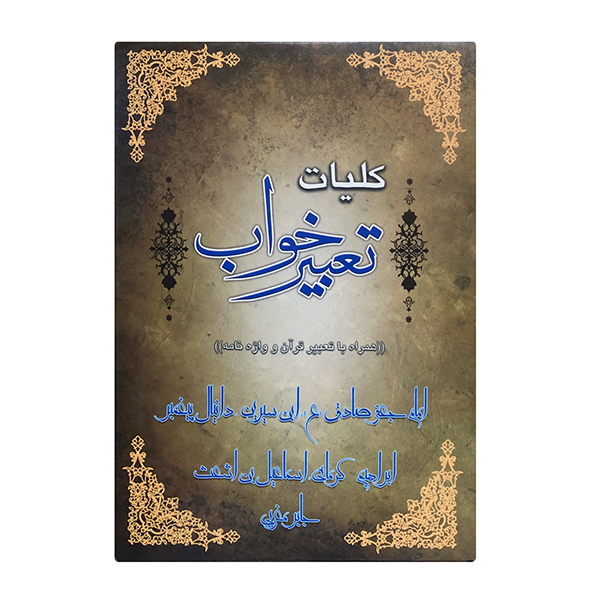 کلیات
تعبیر خواب
((همراه با تعبیر قرآن و واژه نامه))
امام جعفر صادق ع، ابن سیرین دانیال پیغمبر
ابراهیم کرمانی اسماعیل بن اشعث
جابر مغربی